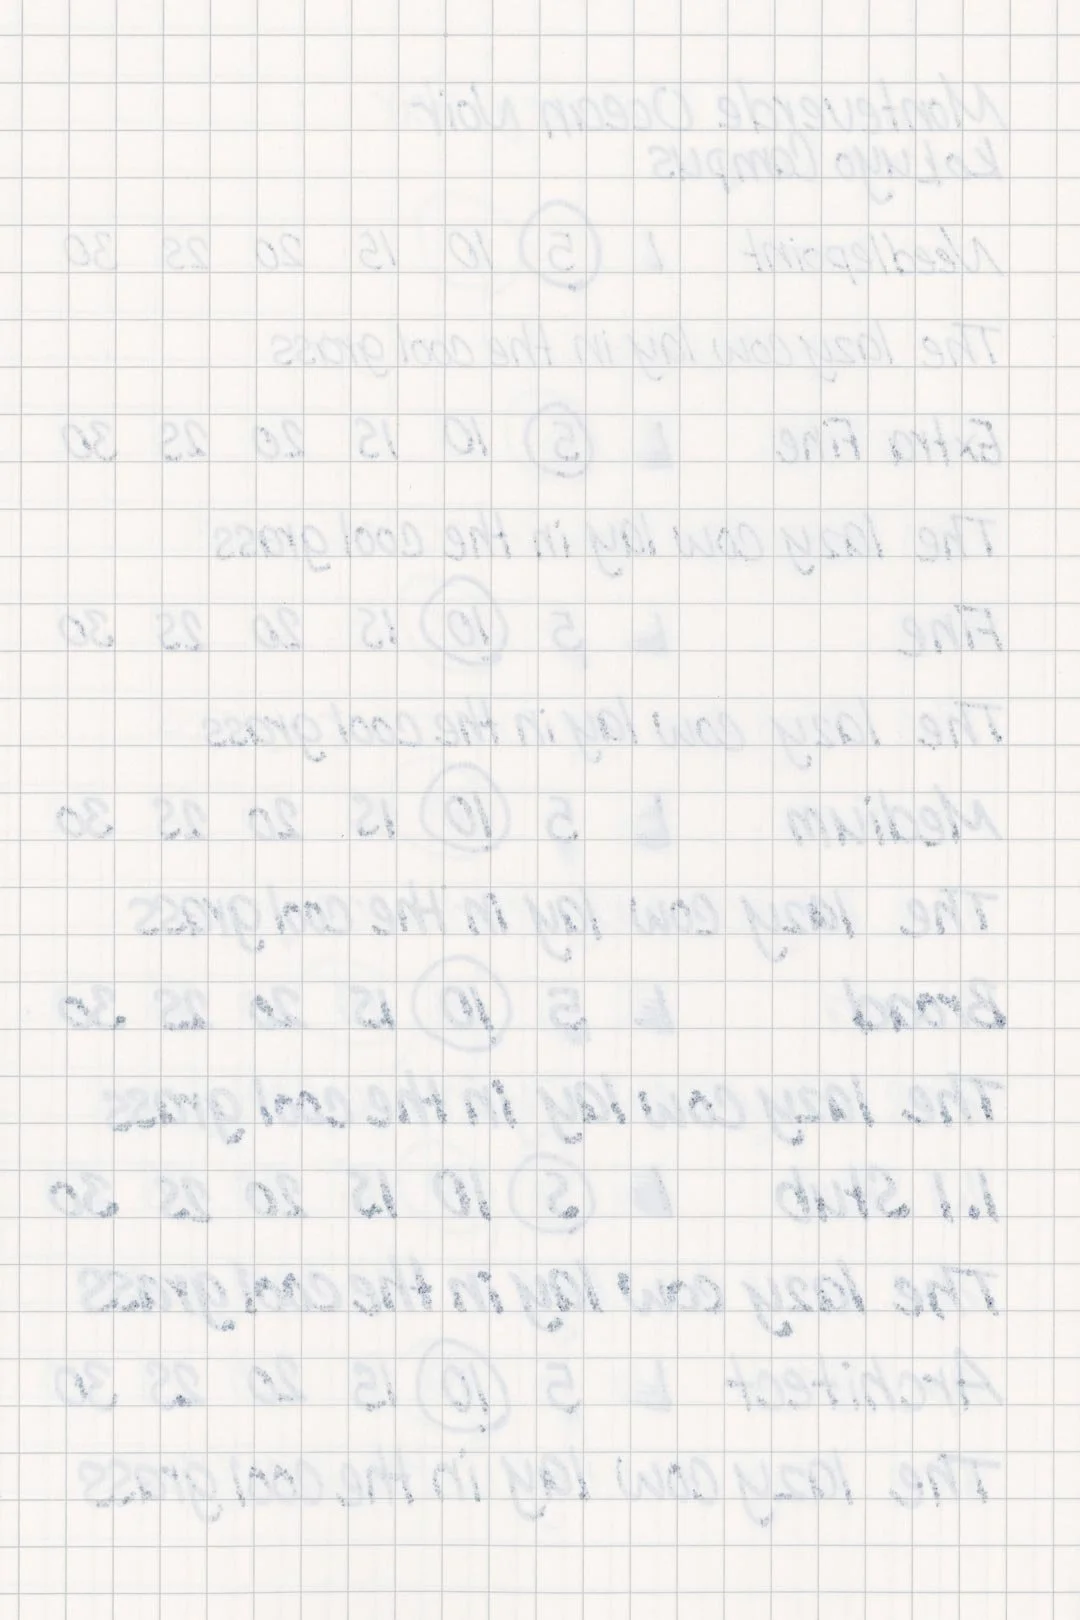 Monteverde Ocean Noir
Kokuyo Campus
Needlepoint L 5 10 15 20 25 30
The lazy cow lay in the cool grass
Extra Fine L 5 10 15 20 25 30
The lazy cow lay in the cool grass
Fine L 5 10 15 20 25 30
The lazy cow lay in the cool grass
Medium L 5 10 15 20 25 30
The lazy cow lay in the cool grass
Broad L 5 10 15 20 25 30
The lazy cow lay in the cool grass
1.1 Stub L 5 10 15 20 25 30
The lazy cow lay in the cool grass
Architect L 5 10 15 20 25 30
The lazy cow lay in the cool grass